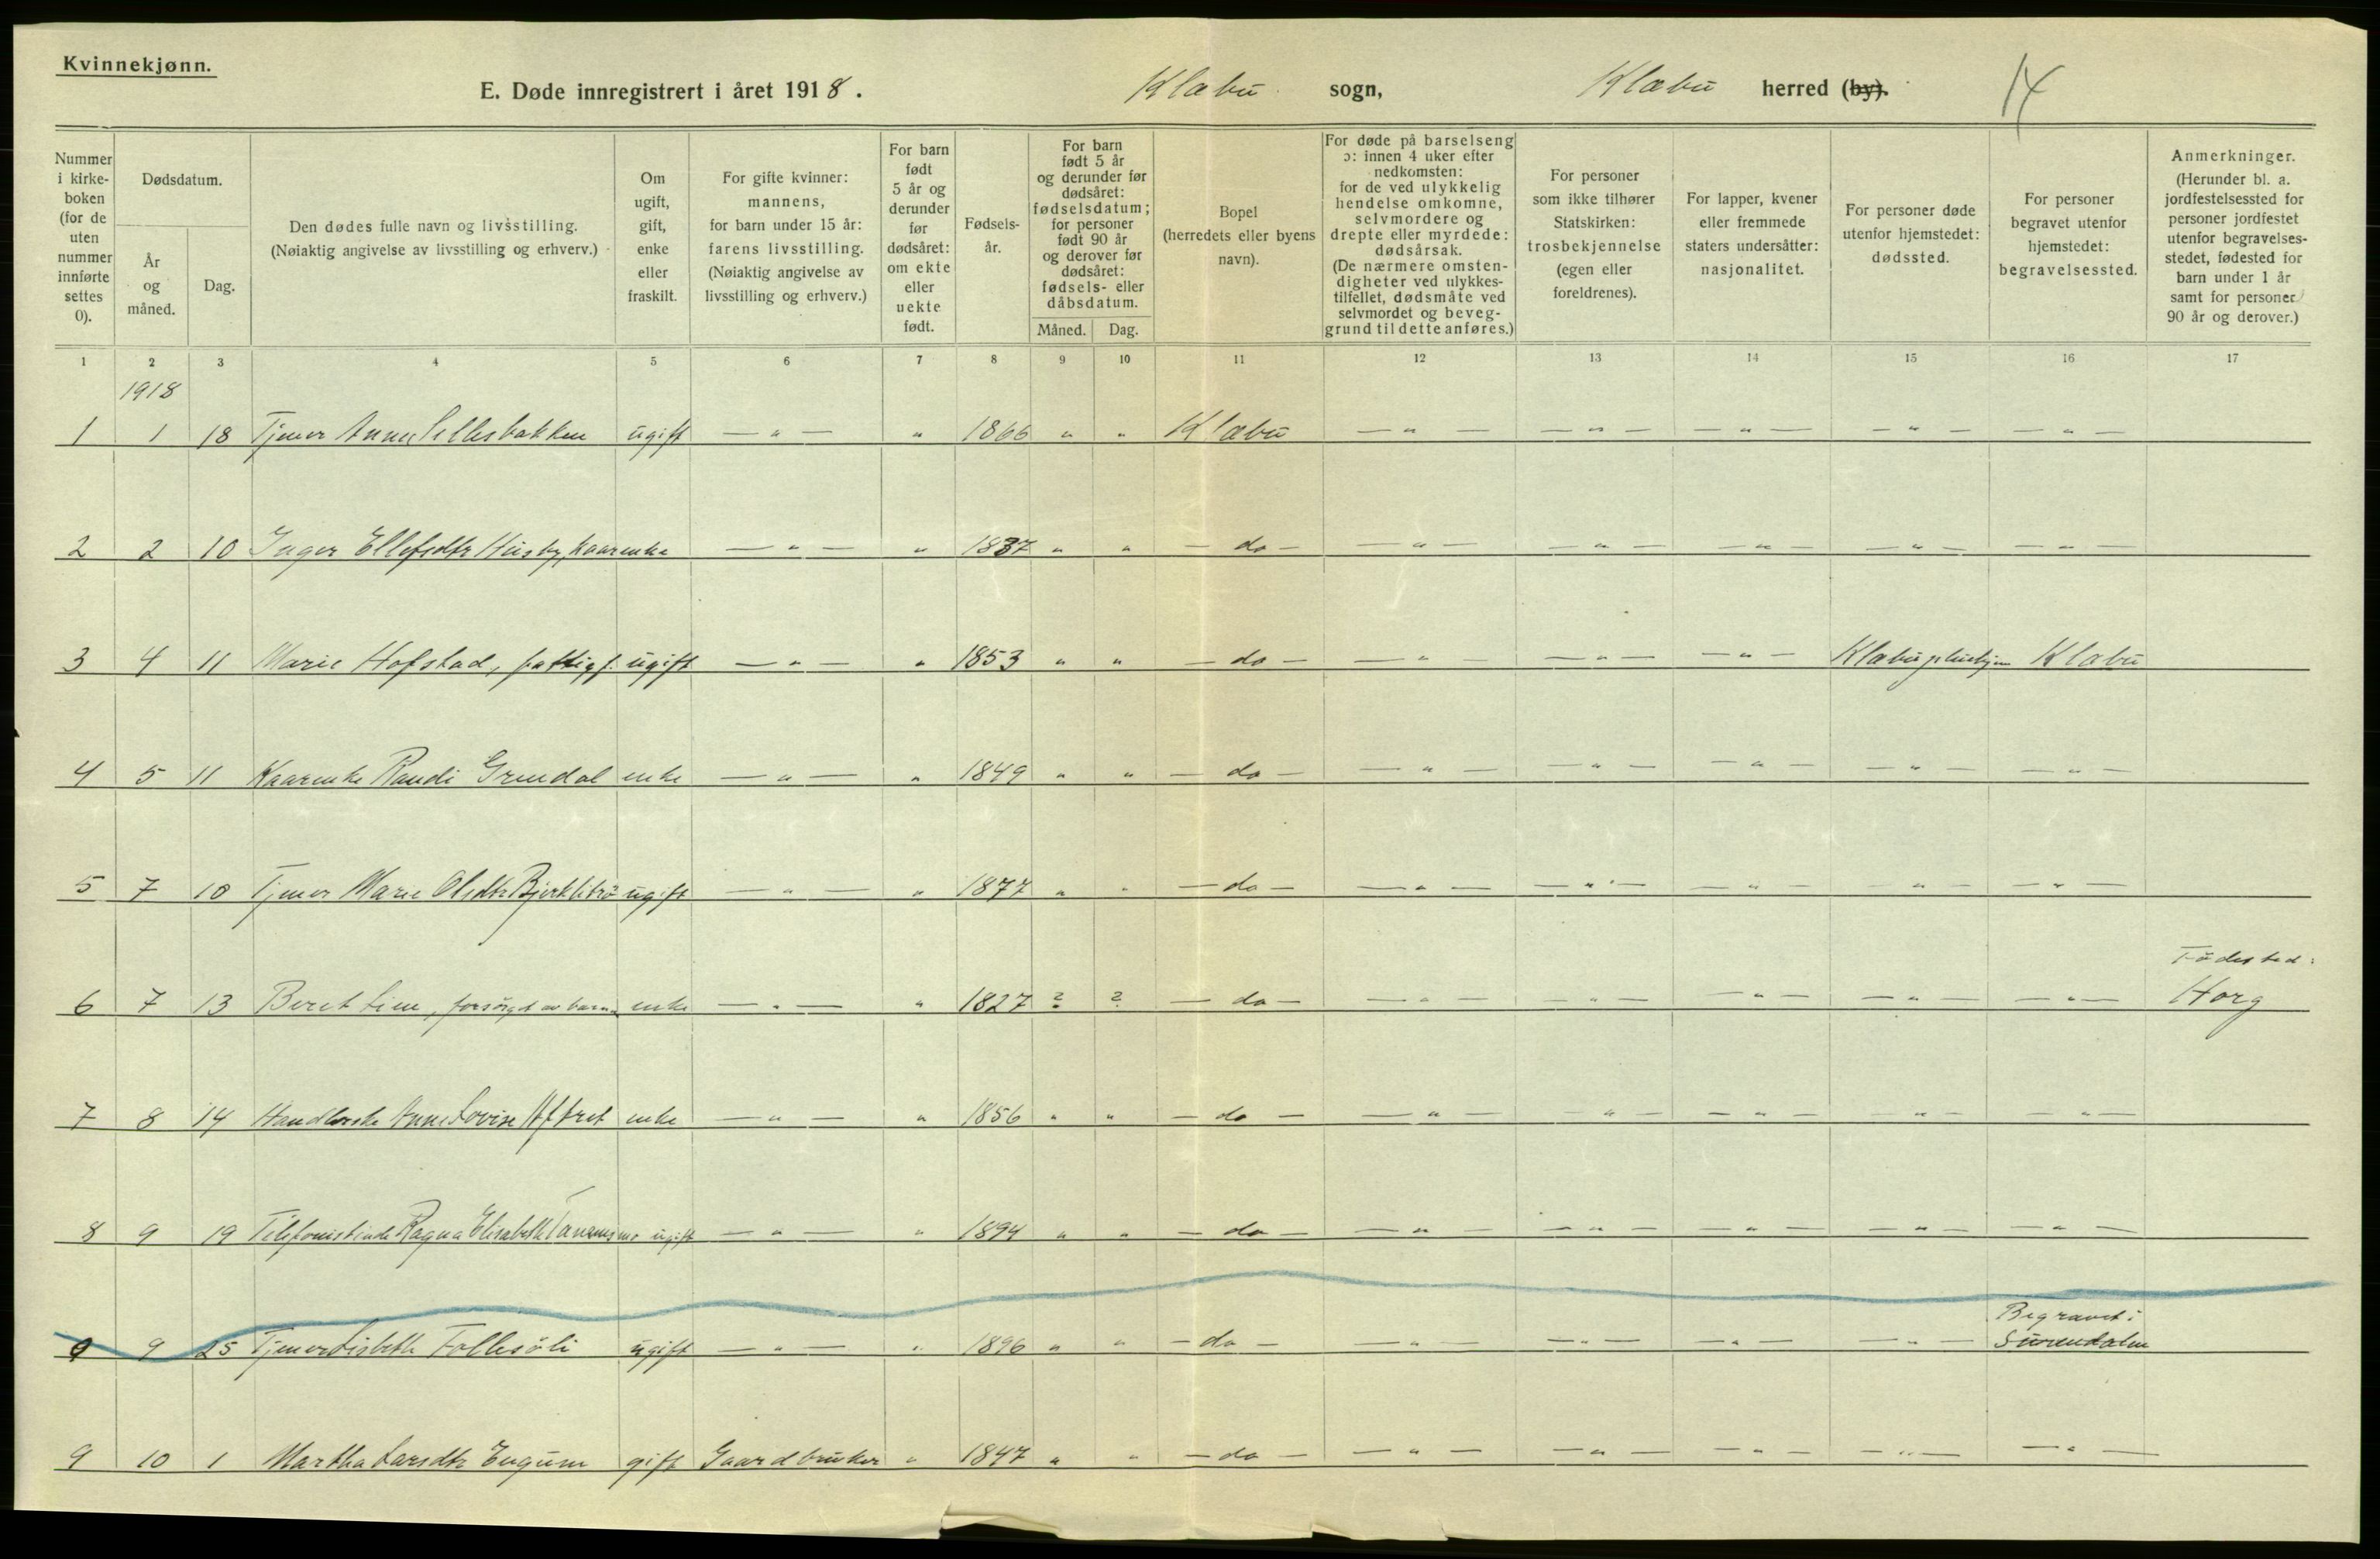 Kvinnekjønn.
E. Døde innregistrert i året 1918. Klæbu sogn, Klæbu herred (by). 14
Nummer i kirke-boken (for de uten nummer innførte settes 0).
Dødsdatum.
År og måned.
Dag.
Den dødes fulle navn og livsstilling.
(Nøiaktig angivelse av livsstilling og erhverv.)
Om ugift, gift, enke eller fraskilt.
For gifte kvinner: mannens, for barn under 15 år: farens livsstilling. (Nøiaktig angivelse av livsstilling og erhverv.)
For barn født 5 år og derunder før dødsåret: om ekte eller uekte født.
Fødsels-år.
For barn født 5 år og derunder før dødsåret: fødselsdatum; for personer født 90 år og derover før dødsåret: fødsels- eller dåbsdatum.
Måned. Dag.
Bopel (herredets eller byens navn).
For døde på barselseng ɔ: innen 4 uker efter nedkomsten: for de ved ulykkelig hendelse omkomne, selvmordere og drepte eller myrdede: dødsårsak. (De nærmere omsten-digheter ved ulykkes-tilfellet, dødsmåte ved selvmordet og beveg-grund til dette anføres.)
For personer som ikke tilhører Statskirken: trosbekjennelse (egen eller foreldrenes).
For lapper, kvener eller fremmede staters undersåtter: nasjonalitet.
For personer døde utenfor hjemstedet: dødssted.
For personer begravet utenfor hjemstedet: begravelsessted.
Anmerkninger. (Herunder bl. a. jordfestelsessted for personer jordfestet utenfor begravelses-stedet, fødested for barn under 1 år samt for personer 90 år og derover.)
1 2 3 4 5 6 7 8 9 10 11 12 13 14 15 16 17
1918
1 1 18 Tjener Anne ugift — " — " 1866 " " Klæbu — " — — " — — " — — " — — " —
2 2 10 Inger Ellefsdtr Husby, kaarenke — " — " 1837 " " — do — — " — — " — — " — — " — — " —
3 4 11 Marie Hofstad, fattigf. ugift — " — " 1853 " " — do — — " — — " — — " — Klæbu pleiehjem Klæbu
4 5 11 Kaarenke Randi Grendal enke — " — " 1849 " " — do — — " — — " — — " — — " — — " —
5 7 10 Tjener Marie Olsdtr ugift — " — " 1877 " " — do — — " — — " — — " — — " — — " —
Fødested:
6 7 13 Beret Lien, forsørget av barn enke — " — " 1827 ? ? — do — — " — — " — — " — — " — — " — Horg
7 8 14 Handlerske Anne Lovise enke — " — " 1856 " " — do — — " — — " — — " — — " — — " —
8 9 19 Telefonistinde Ragna Elisabeth ugift — " — " 1894 " " — do — — " — — " — — " — — " — — " —
Begravet i
0 9 25 Tjener Lisbeth Follesöli ugift — " — " 1896 " " — do — — " — — " — — " — — " — Surendalen
9 10 1 Martha Larsdtr Engum gift Gaardbruker " 1847 " " — do — — " — — " — — " — — " — — " —